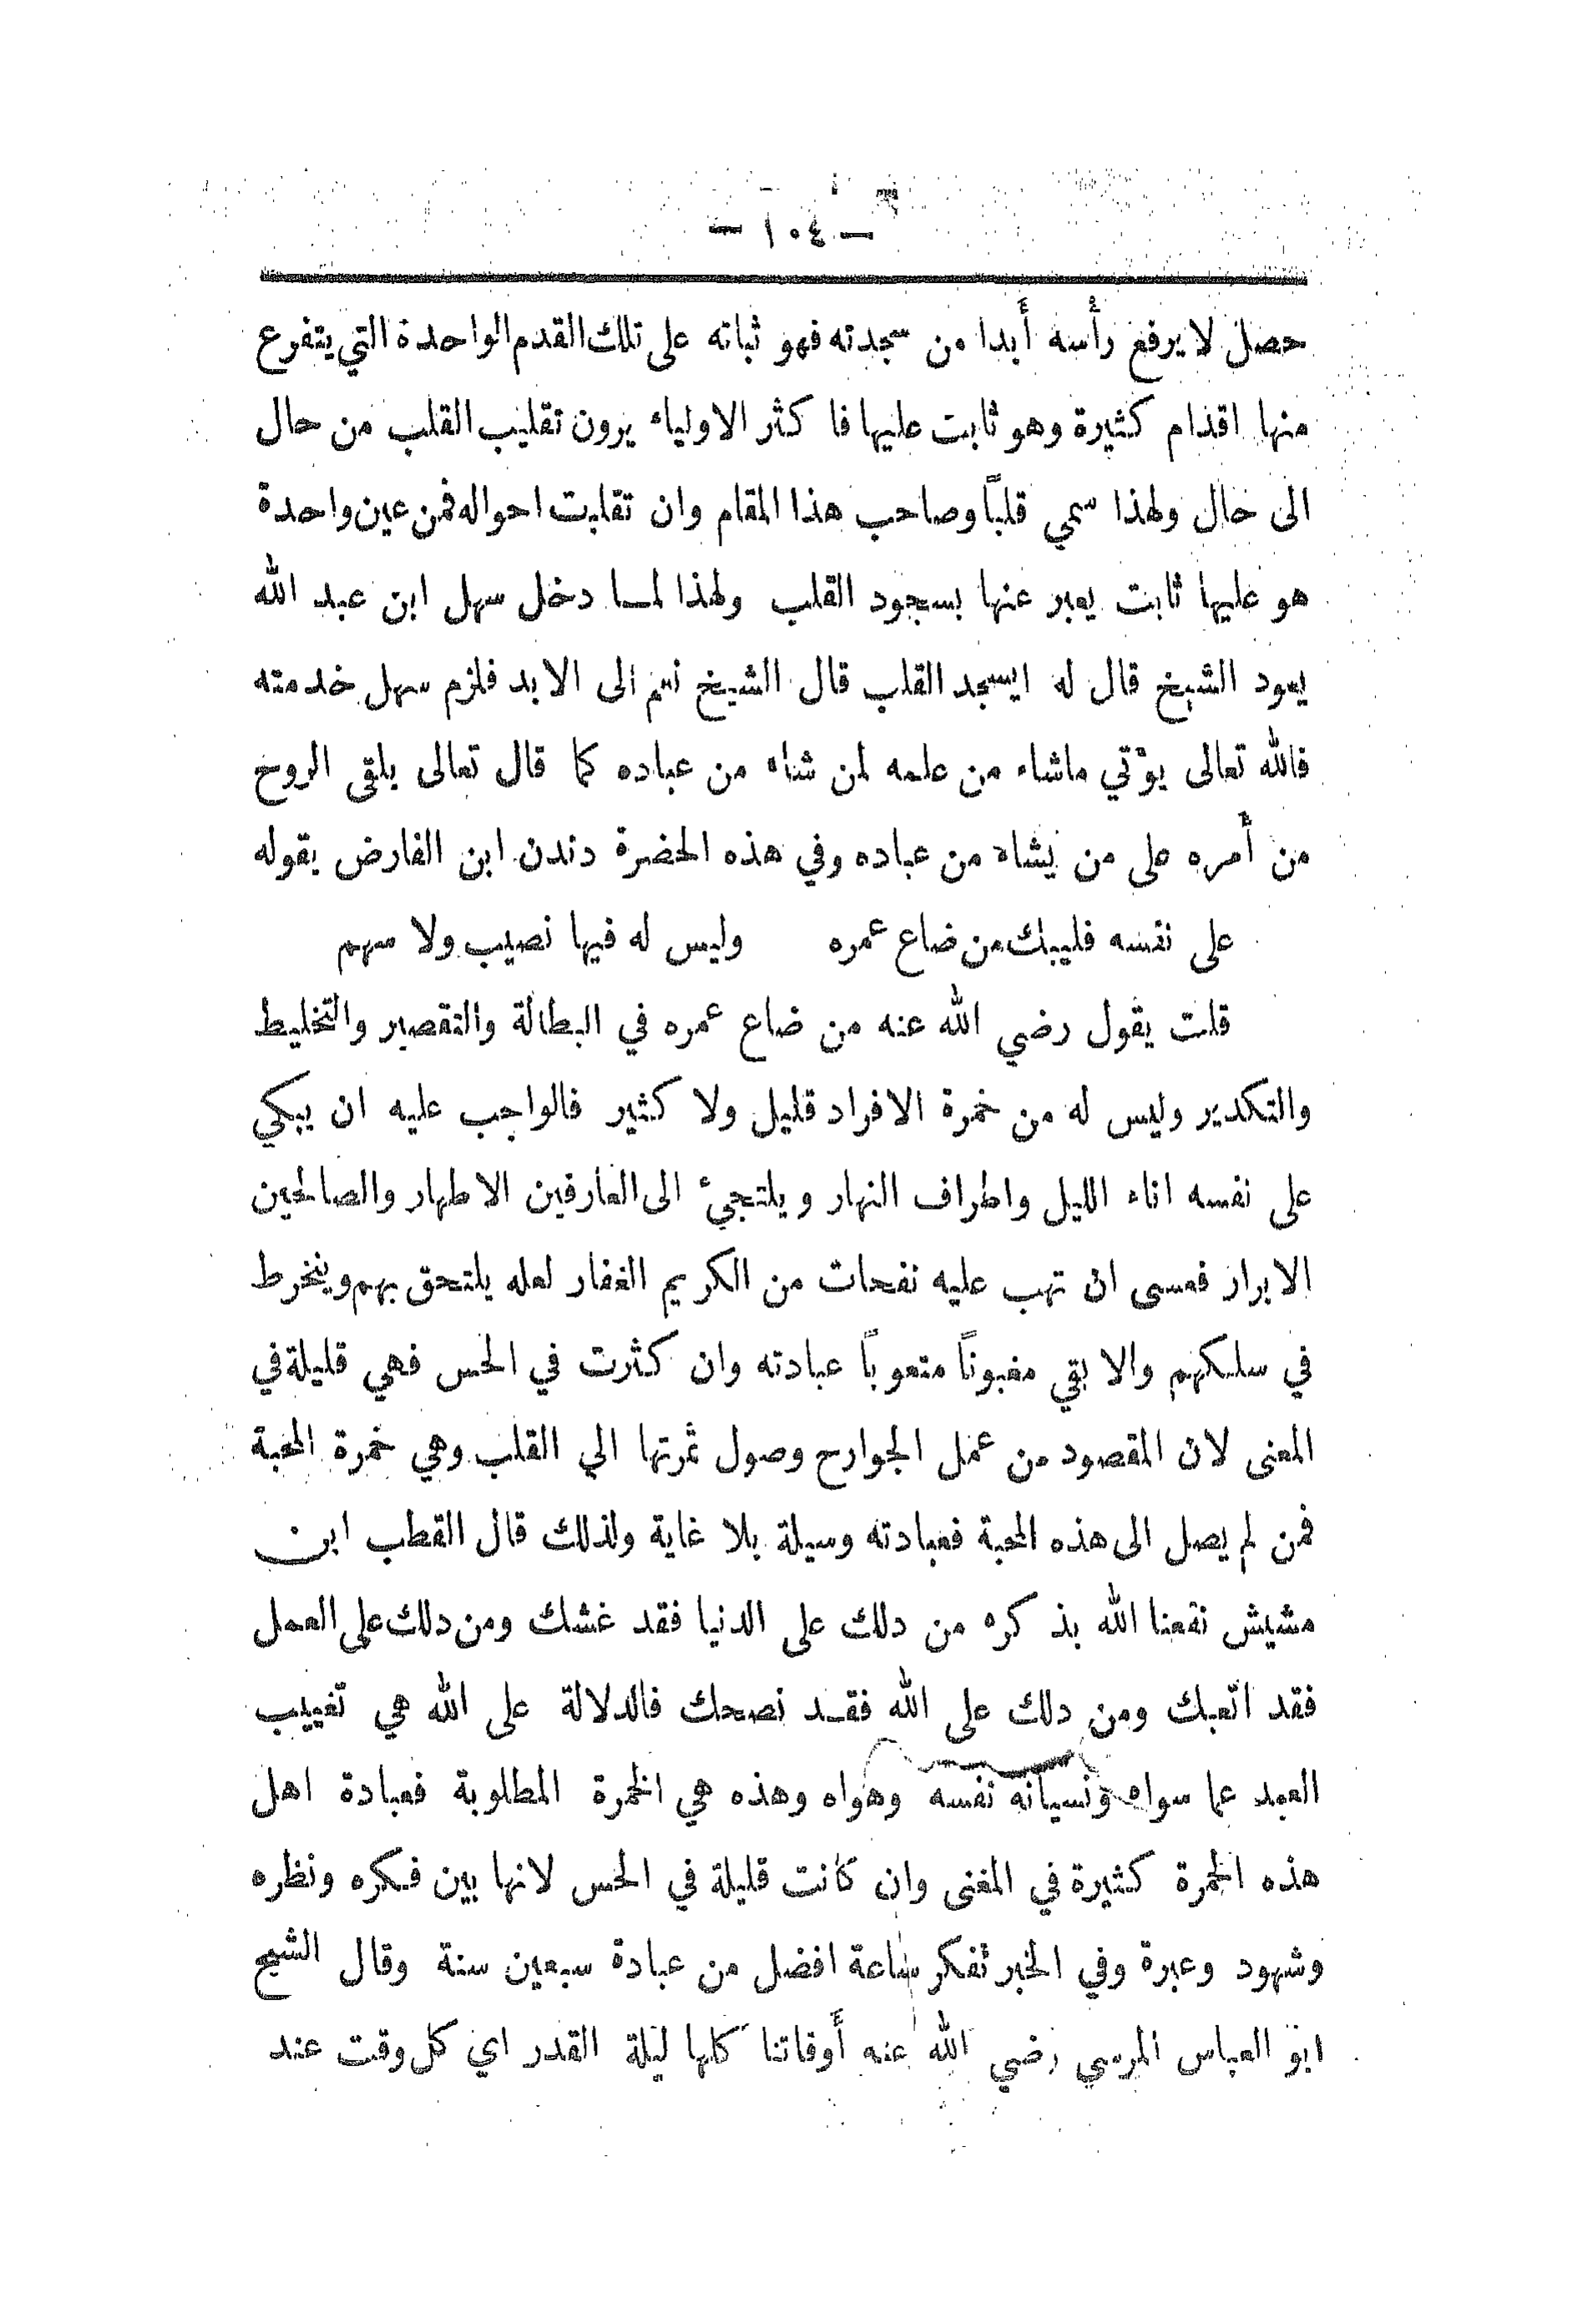 — ١٠٤ —
حصل لا يرفع رأسه أبدا من سجدته فهو ثباته على تلك القدم الواحدة التي يتفرع
منها اقدام كثيرة وهو ثابت عليها فا كثر الاولياء يرون تقليب القلب من حال
الى حال ولهذا سمي قلبًا وصاحب هذا المقام وان تقلبت احواله فمن عين واحدة
هو عليها ثابت يعبر عنها بسجود القلب ولهذا لما دخل سهل ابن عبد الله
يعود الشيخ قال له ايسجد القلب قال الشيخ نعم الى الابد فلزم سهل خدمته
فالله تعالى يؤتي ماشاء من علمه لمن شاء من عباده كما قال تعالى يلقى الروح
من أمره على من يشاء من عباده وفي هذه الحضرة دندن ابن الفارض بقوله
على نفسه فليبك من ضاع عمره وليس له فيها نصيب ولا سهم
قلت يقول رضي الله عنه من ضاع عمره في البطالة والتقصير والتخليط
والتكدير وليس له من خمرة الافراد قليل ولا كثير فالواجب عليه ان يبكي
على نفسه اناء الليل واطراف النهار ويلتجيء الى العارفين الاطهار والصالحين
الابرار فعسى ان تهب عليه نفحات من الكريم الغفار لعله يلتحق بهم وينخرط
في سلكهم والا بقي مغبونًا متعوبًا عبادته وان كثرت في الحس فهي قليلة في
المعنى لان المقصود من عمل الجوارح وصول ثمرتها الي القلب وهي خمرة المحبة
فمن لم يصل الى هذه المحبة فعبادته وسيلة بلا غاية ولذلك قال القطب ابن
مشيش نفعنا الله بذ كره من دلك على الدنيا فقد غشك ومن دلك على العمل
فقد اتعبك ومن دلك على الله فقد نصحك فالدلالة على الله هي تغييب
العبد عما سواه ونسيانه نفسه وهواه وهذه هي الخمرة المطلوبة فعبادة اهل
هذه الخمرة كثيرة في المعنى وان كانت قليلة في الحس لانها بين فكره ونظره
وشهود وعبرة وفي الخبر تفكر ساعة افضل من عبادة سبعين سنة وقال الشيخ
ابو العباس المرسي رضي الله عنه أوقاتنا كلها ليلة القدر اي كل وقت عند